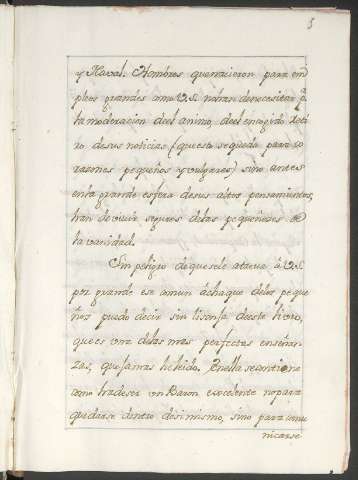 5
y Naval. Hombres que nacieron para em
pleos grandes como V.S. no han de necesitar pª
la moderacion del animo, del encogido reti
ro de sus noticias (que esto se queda para co
razones pequeños y vulgares) sino antes
en la grande esfera de sus altos pensamientos,
han de vivir seguros de las pequeñeces de
la vanidad.
Sin peligro de que se le atreva á V.S.
por grande ese comun áchaque de los peque
ños puedo decir sin lisonja de este libro,
que es una de las mas perfectas enseñan
zas, que jamas he leido. En ella se contiene
como ha de ser un Baron excelente no para
quedarse dentro de si mismo, sino para comu
nicarse